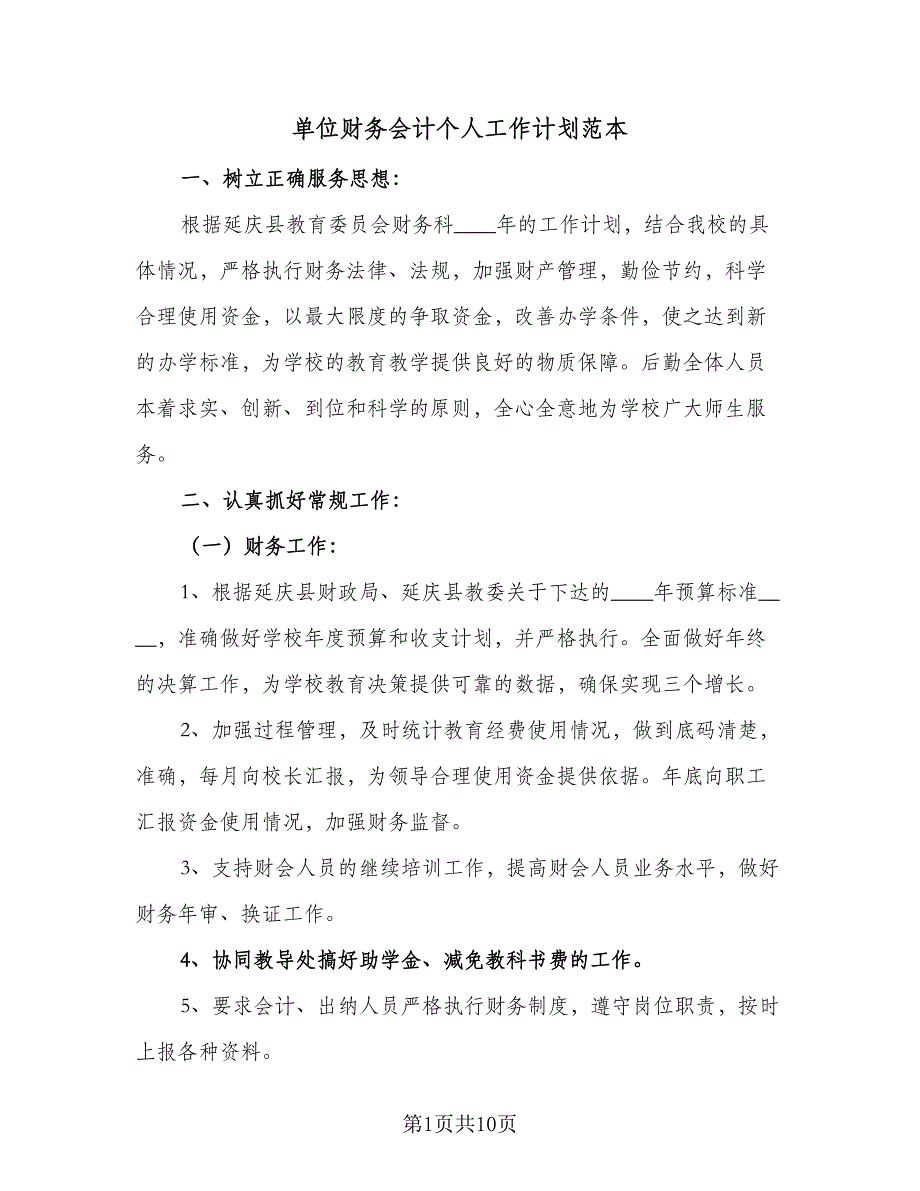 单位财务会计个人工作计划范本
一、树立正确服务思想：
根据延庆县教育委员会财务科____年的工作计划，结合我校的具
体情况，严格执行财务法律、法规，加强财产管理，勤俭节约，科学
合理使用资金，以最大限度的争取资金，改善办学条件，使之达到新
的办学标准，为学校的教育教学提供良好的物质保障。后勤全体人员
本着求实、创新、到位和科学的原则，全心全意地为学校广大师生服
务。
二、认真抓好常规工作：
（一）财务工作：
1、根据延庆县财政局、延庆县教委关于下达的____年预算标准__
__，准确做好学校年度预算和收支计划，并严格执行。全面做好年终
的决算工作，为学校教育决策提供可靠的数据，确保实现三个增长。
2、加强过程管理，及时统计教育经费使用情况，做到底码清楚，
准确，每月向校长汇报，为领导合理使用资金提供依据。年底向职工
汇报资金使用情况，加强财务监督。
3、支持财会人员的继续培训工作，提高财会人员业务水平，做好
财务年审、换证工作。
4、协同教导处搞好助学金、减免教科书费的工作。
5、要求会计、出纳人员严格执行财务制度，遵守岗位职责，按时
上报各种资料。
第1页共10页